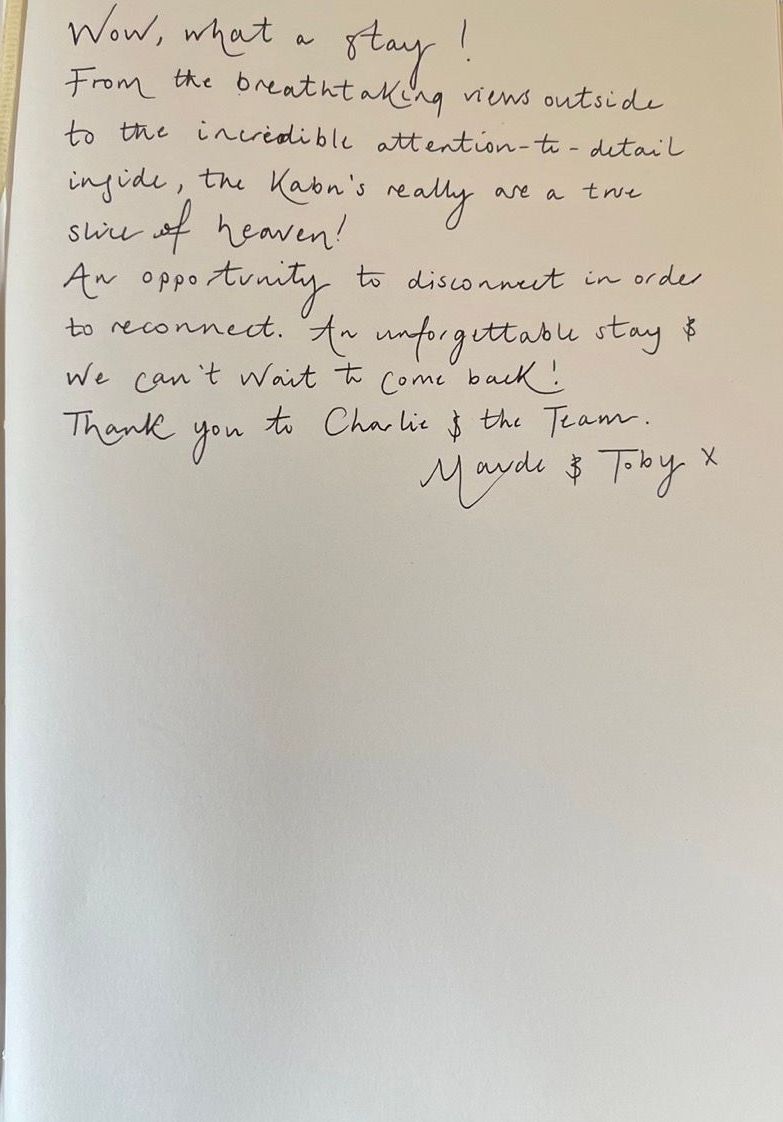 Wow, what a stay!
From the breathtaking views outside
to the incredible attention-to-detail
inside, the Kabn's really are a true
slice of heaven!
An opportunity to disconnect in order
to reconnect. An unforgettable stay &
We can't wait to come back!
Thank you to Charlie & the Team.
Maude & Toby x